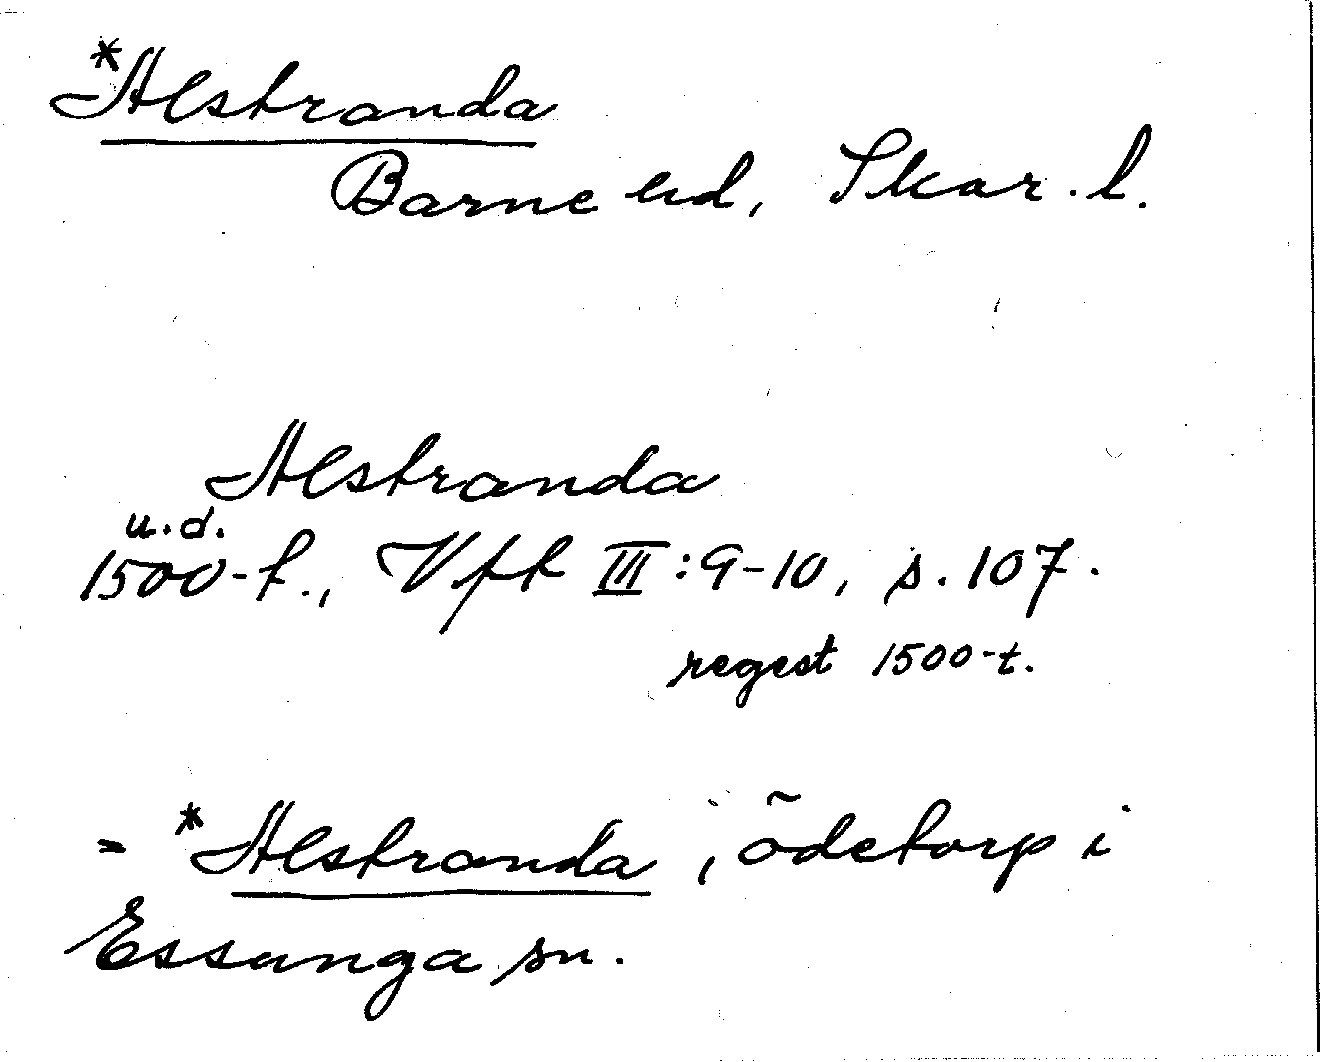 *Alstranda
Barne hd, Skar. l.
Alstranda
u.d.
1500-t., Vfk III:9-10, s. 107.
regest 1500-t.
= *Alstranda, ödetorp i
Essunga sn.